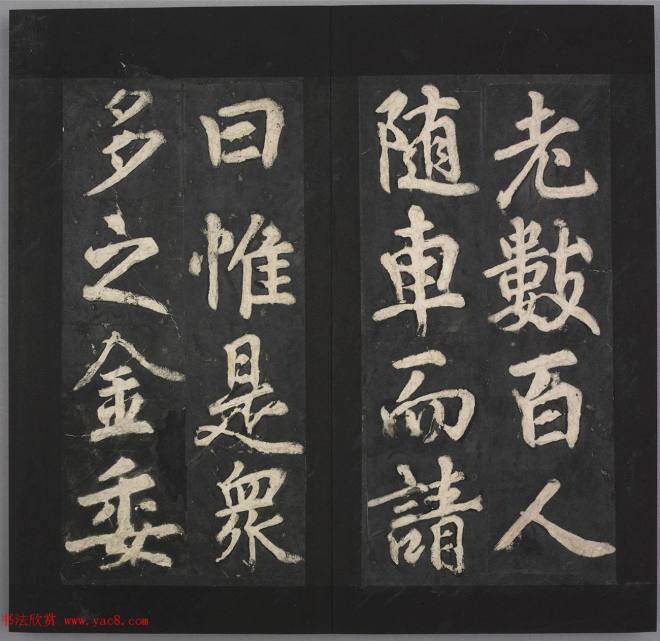 老數百人
随車而請
曰惟是眾
多之金委
书法欣赏 www.yac8.com